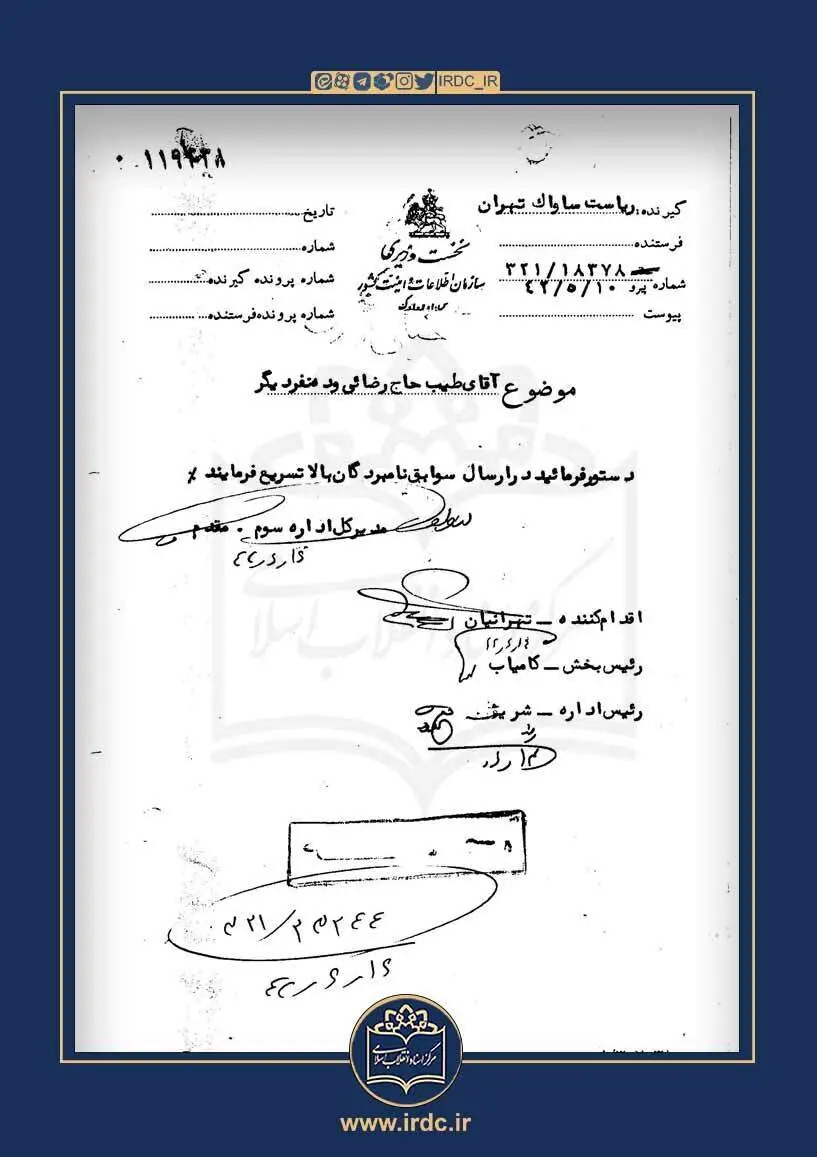 IRDC_IR
۰۱۱۹۴۳۸
گیرنده: ریاست ساواك تهران
فرستنده
۳۲۱/۱۸۳۷۸
شماره پیرو ۴۲/۵/۱۰
پیوست
نخست وزیری
سازمان اطلاعات و امنیت کشور
تاریخ
شماره
شماره پرونده گیرنده
شماره پرونده فرستنده
موضوع آقای طیب حاج رضائی و ده نفر دیگر
دستور فرمائید در ارسال سوابق نامبردگان بالا تسریع فرمایند
مدیرکل اداره سوم - مقدم
اقدام کننده - تهرانیان
رئیس بخش - کامیاب
رئیس اداره - شریفی
مرکز اسناد انقلاب اسلامی
www.irdc.ir